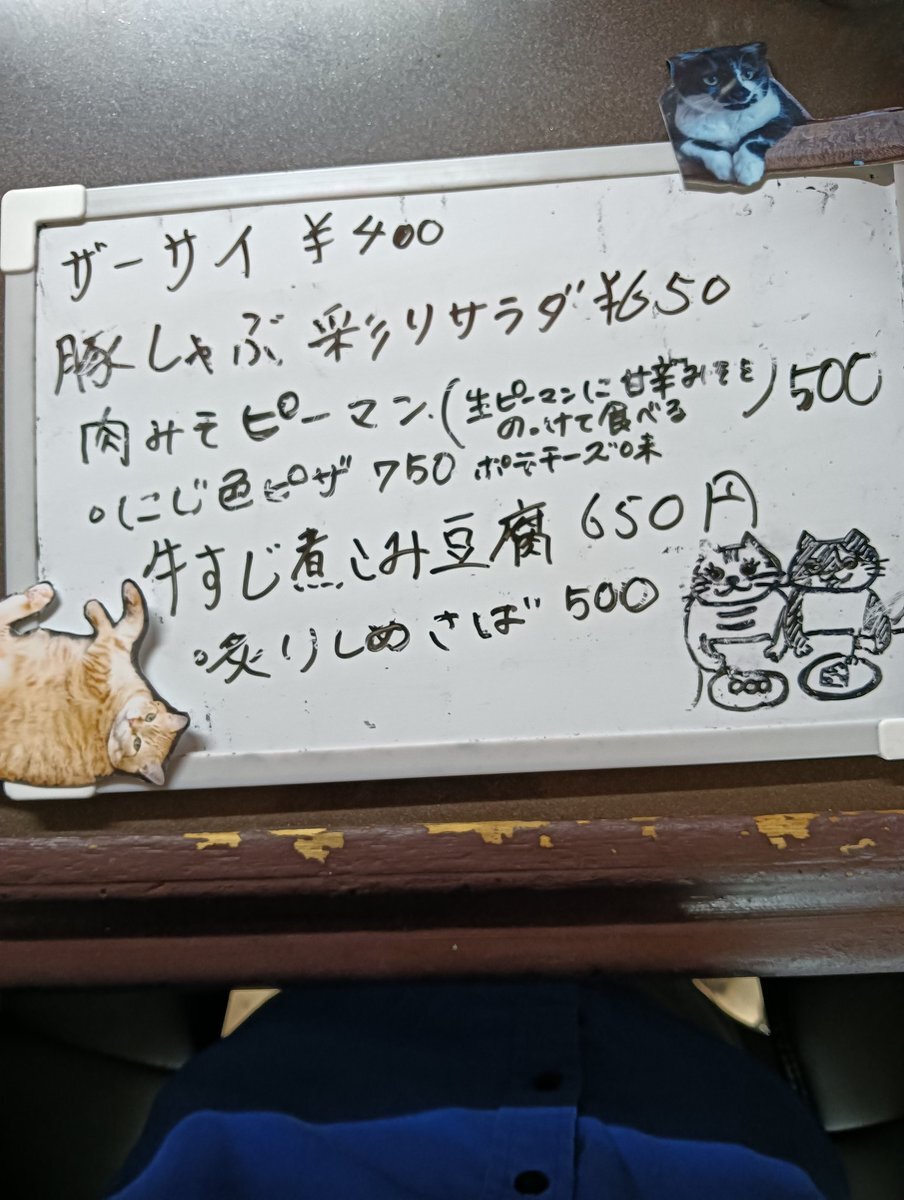 ザーサイ ¥400
豚しゃぶ 彩りサラダ ¥650
肉みそピーマン (生ピーマンに甘辛みそを 500
のっけて食べる)
○にじ色ピザ 750 ポテチーズ味
牛すじ煮こみ豆腐 650円
○炙りしめさば 500